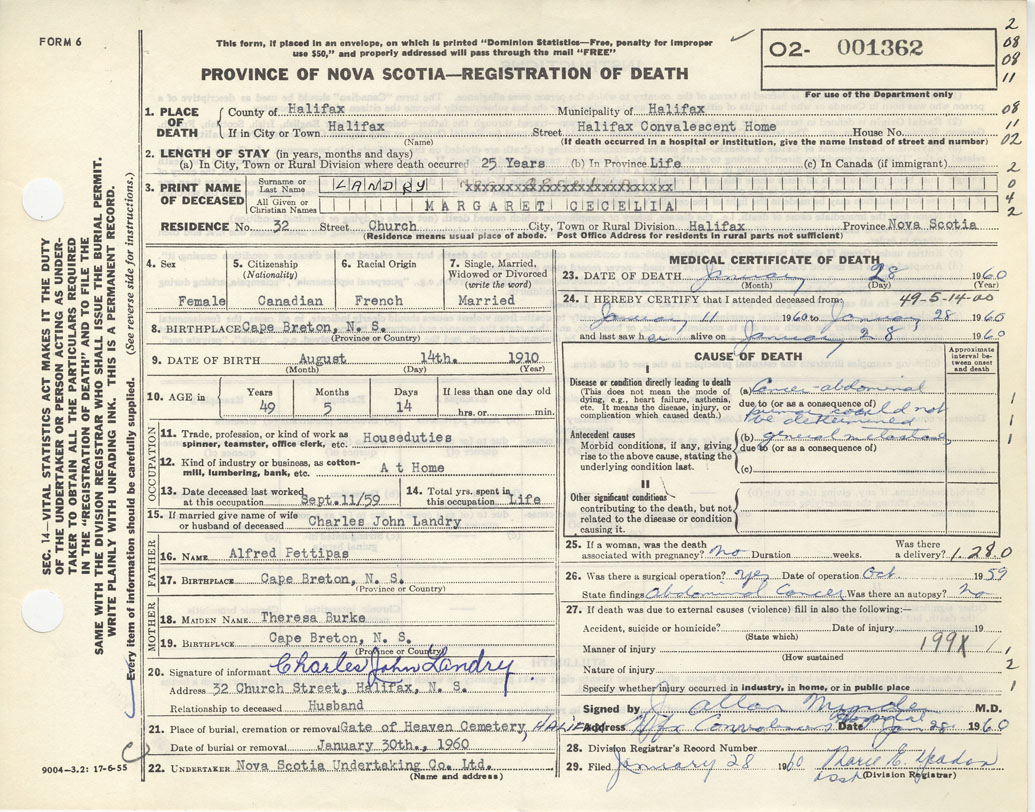 FORM 6
This form, if placed in an envelope, on which is printed "Dominion Statistics—Free, penalty for improper
use $50," and properly addressed will pass through the mail "FREE"
PROVINCE OF NOVA SCOTIA—REGISTRATION OF DEATH
O2- 001362
For use of the Department only
2
08
08
11
08
11
02
2
0
4
2
1. PLACE OF DEATH
County of Halifax Municipality of Halifax
If in City or Town Halifax Street Halifax Convalescent Home House No.
(Name) (If death occurred in a hospital or institution, give the name instead of street and number)
2. LENGTH OF STAY (in years, months and days)
(a) In City, Town or Rural Division where death occurred 25 Years (b) In Province Life (c) In Canada (if immigrant)
3. PRINT NAME OF DECEASED
Surname or Last Name LANDRY
All Given or Christian Names MARGARET CECELIA
RESIDENCE No. 32 Street Church City, Town or Rural Division Halifax Province Nova Scotia
(Residence means usual place of abode. Post Office Address for residents in rural parts not sufficient)
4. Sex
Female
5. Citizenship
(Nationality)
Canadian
6. Racial Origin
French
7. Single, Married,
Widowed or Divorced
(write the word)
Married
8. BIRTHPLACE Cape Breton, N. S.
(Province or Country)
9. DATE OF BIRTH August 14th. 1910
(Month) (Day) (Year)
10. AGE in
Years Months Days If less than one day old
49 5 14 hrs. or min.
OCCUPATION
11. Trade, profession, or kind of work as
spinner, teamster, office clerk, etc. Houseduties
12. Kind of industry or business, as cotton-
mill, lumbering, bank, etc. At Home
13. Date deceased last worked
at this occupation Sept.11/59
14. Total yrs. spent in
this occupation Life
15. If married give name of wife
or husband of deceased Charles John Landry
FATHER
16. NAME Alfred Pettipas
17. BIRTHPLACE Cape Breton, N. S.
(Province or Country)
MOTHER
18. MAIDEN NAME Theresa Burke
19. BIRTHPLACE Cape Breton, N. S.
(Province or Country)
20. Signature of informant Charles John Landry
Address 32 Church Street, Halifax, N. S.
Relationship to deceased Husband
21. Place of burial, cremation or removal Gate of Heaven Cemetery, HALIFAX
Date of burial or removal January 30th., 1960
22. UNDERTAKER Nova Scotia Undertaking Co. Ltd.
(Name and address)
MEDICAL CERTIFICATE OF DEATH
23. DATE OF DEATH January 28 1960
(Month) (Day) (Year)
24. I HEREBY CERTIFY that I attended deceased from: 49-5-14-00
January 11 1960 to January 28 1960
and last saw her alive on January 28 1960
CAUSE OF DEATH
Approximate
interval be-
tween onset
and death
I
Disease or condition directly leading to death
(This does not mean the mode of
dying, e.g., heart failure, asthenia,
etc. It means the disease, injury, or
complication which caused death.)
(a) Cancer-abdominal
due to (or as a consequence of)
could not
be determined
Antecedent causes
Morbid conditions, if any, giving
rise to the above cause, stating the
underlying condition last.
(b) general
due to (or as a consequence of)
(c)
1
1
1
II
Other significant conditions
contributing to the death, but not
related to the disease or condition
causing it.
25. If a woman, was the death
associated with pregnancy? no Duration weeks. Was there
a delivery? 1.280
26. Was there a surgical operation? yes Date of operation Oct. 1959
State findings Abdominal Cancer Was there an autopsy? no
27. If death was due to external causes (violence) fill in also the following:—
Accident, suicide or homicide? Date of injury 19
(State which)
Manner of injury 199X 1
(How sustained
Nature of injury 2
Specify whether injury occurred in industry, in home, or in public place 1
Signed by J. Allan M.D.
Address Hfx Convalescent Hospital Date Jan 28 1960
28. Division Registrar's Record Number
29. Filed January 28 1960
(Division Registrar)
SEC. 14—VITAL STATISTICS ACT MAKES IT THE DUTY
OF THE UNDERTAKER OR PERSON ACTING AS UNDER-
TAKER TO OBTAIN ALL THE PARTICULARS REQUIRED
IN THE "REGISTRATION OF DEATH AND TO FILE THE
SAME WITH THE DIVISION REGISTRAR WHO SHALL ISSUE THE BURIAL PERMIT.
WRITE PLAINLY WITH UNFADING INK. THIS IS A PERMANENT RECORD.
Every item of information should be carefully supplied. (See reverse side for instructions.)
9004—3.2: 17-6-55